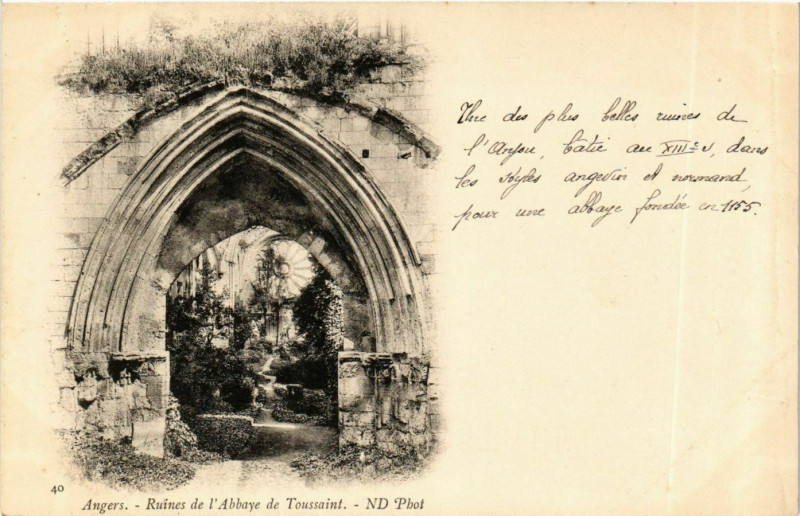 Une des plus belles ruines de
l'Anjou, bâtie au XIIIe s, dans
les styles angevin et normand,
pour une abbaye fondée en 1155.
40
Angers. - Ruines de l'Abbaye de Toussaint. - ND Phot